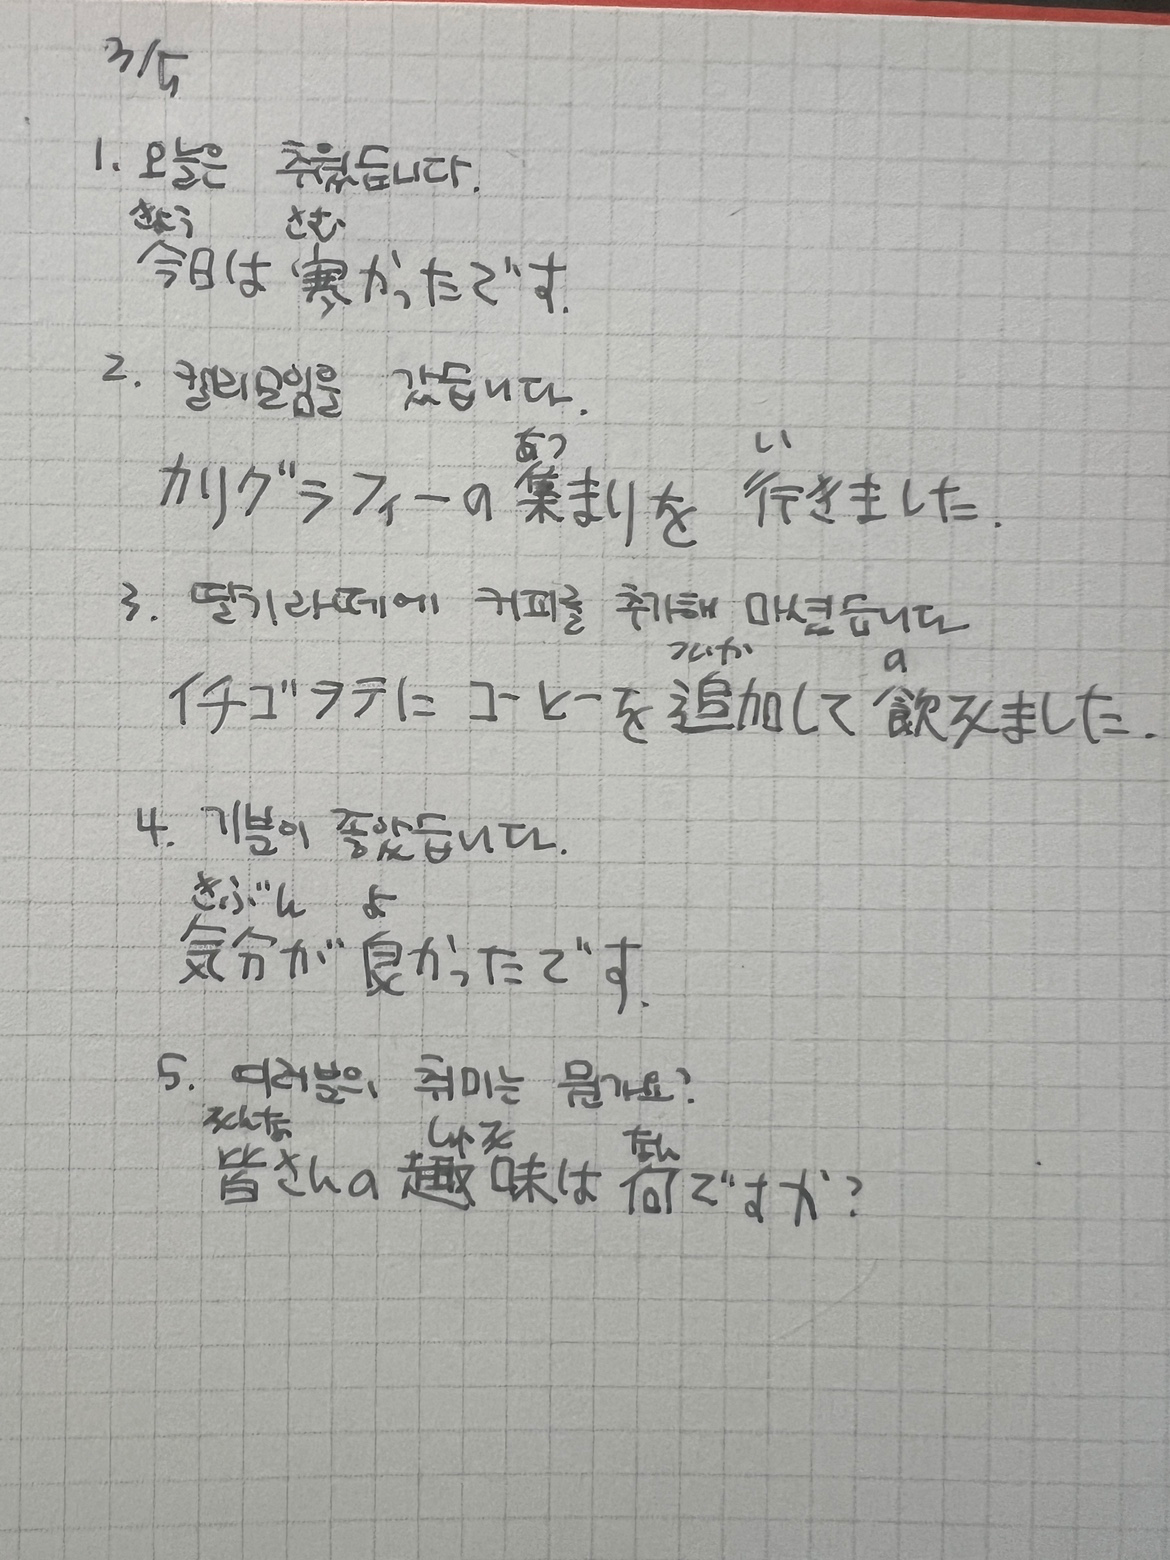 3/5
1. 오늘은 추웠습니다.
きょう さむ
今日は 寒かったです.
2. 캘리모임을 갔습니다.
あつ い
カリグラフィーの集まりを 行きました.
3. 딸기라떼에 커피를 추가해 마셨습니다
ついか の
イチゴラテに コーヒーを 追加して 飲みました.
4. 기분이 좋았습니다.
きぶん よ
気分が 良かったです.
5. 여러분의 취미는 뭔가요?
みんな しゅみ なん
皆さんの 趣味は 何ですか?